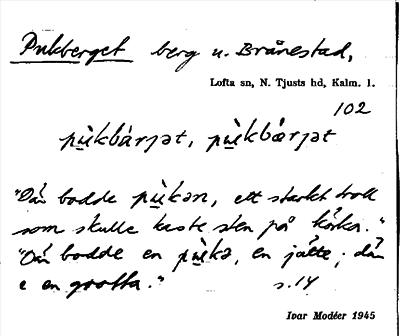 Pukberget berg u. Brånestad,
Lofta sn, N. Tjusts hd, Kalm. l.
102
pu̱̇kbárjət, pu̱̇kbǽrjət
"Där bodde pu̱̇kən, ett starkt troll
som skulle kaste sten på körka."
"Där bodde en pu̱̇kə, en jätte; dä
e en grotta." s. 14
Ivar Modéer 1945